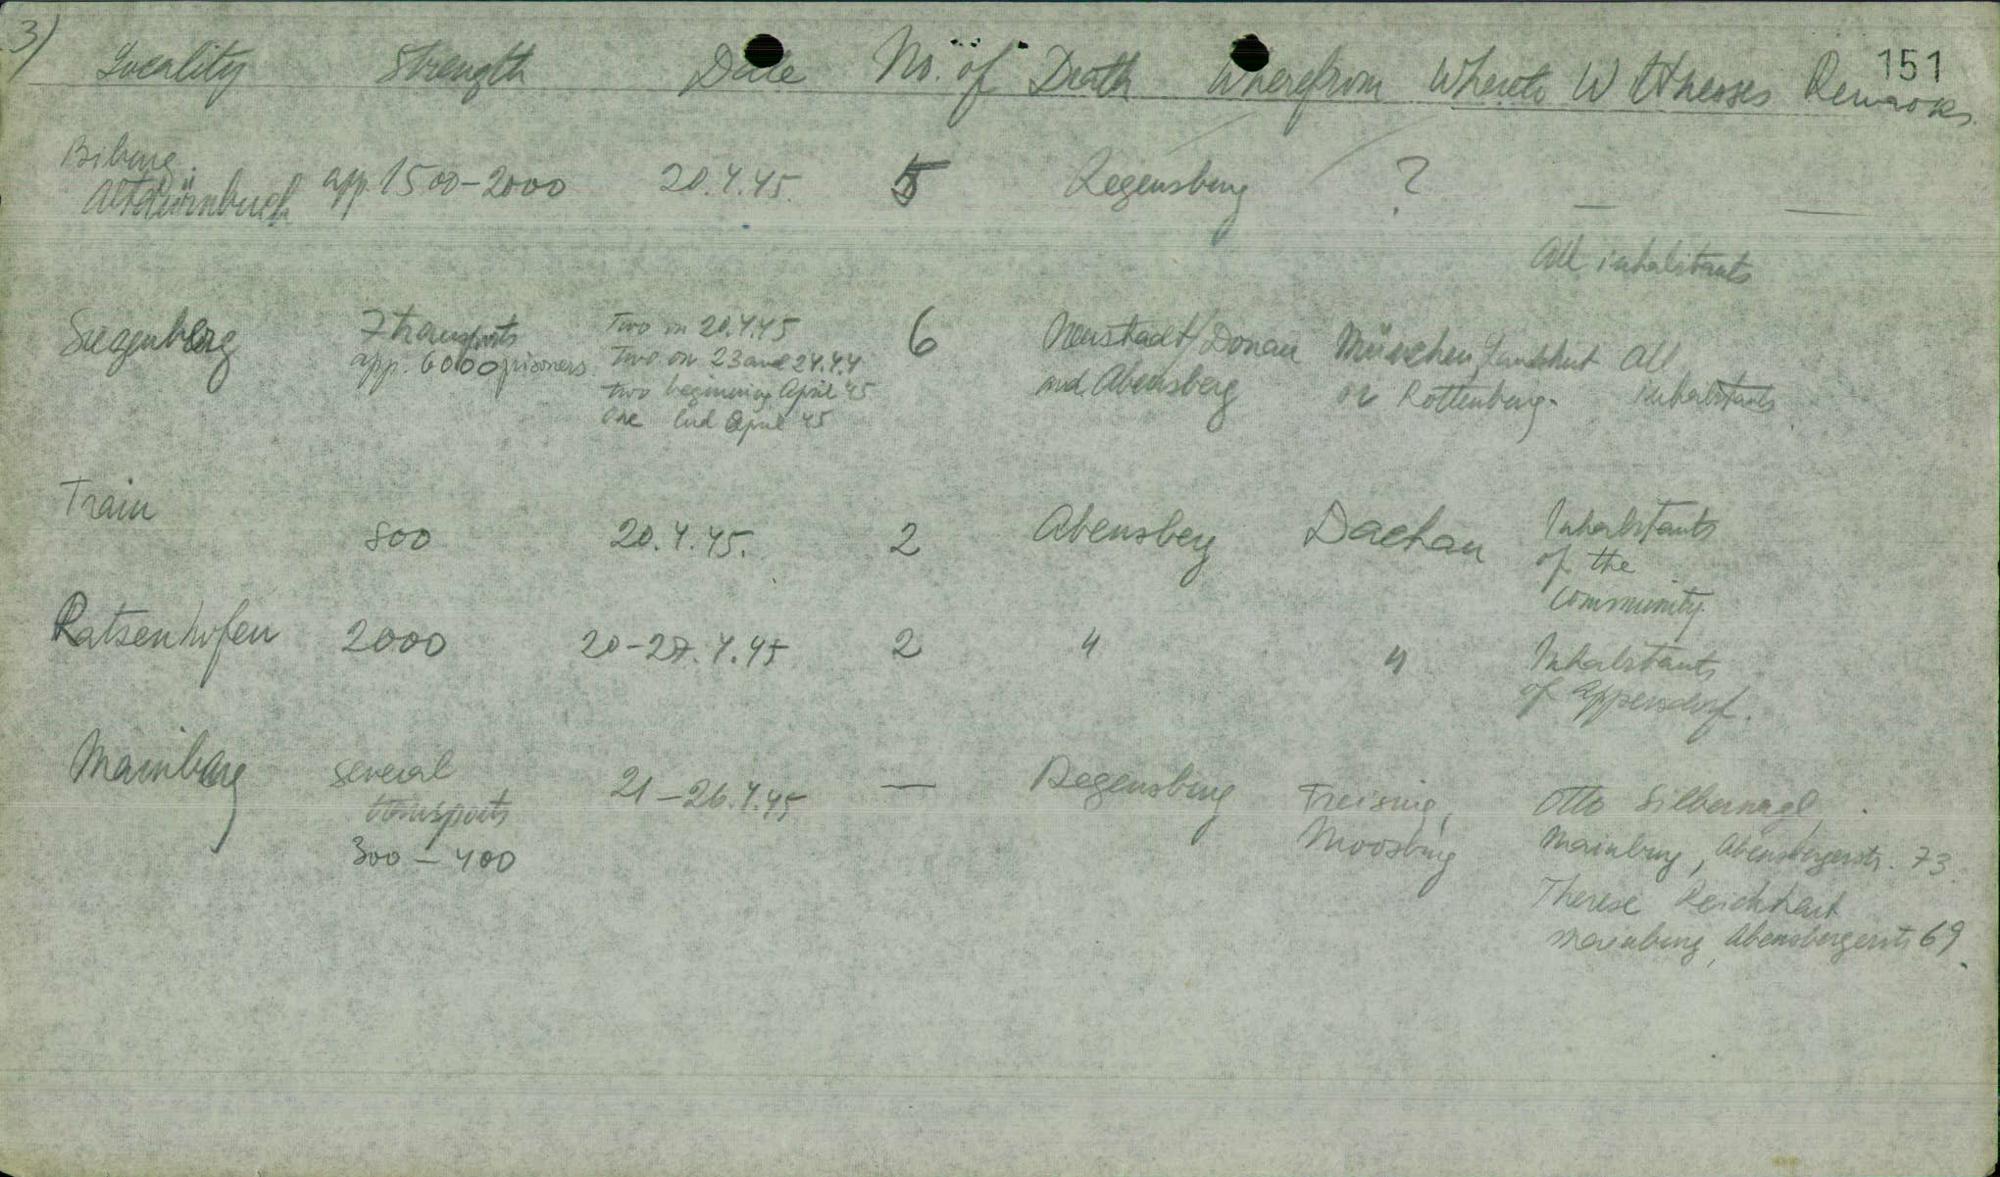 3)
151
Locality Strength Date No. of Death Wherefrom Whereto Witnesses Remarks
Biburg
Altdürnbuch app. 1500-2000 20.4.45. 5 Regensburg ? — —
All inhabitants
Siegenburg 7 transports Two on 20.4.45 6 Neustadt/Donau München, Landshut All
app. 6000 prisoners Two on 23 and 24.4.4 and Abensberg or Rottenburg. inhabitants
two beginning April 45
one End April 45
Train 800 20.4.45. 2 Abensberg Dachau Inhabitants
of the
community.
Ratzenhofen 2000 20-27.4.45 2 " " Inhabitants
of Appersdorf.
Mainburg several 21-26.4.45 — Regensburg Freising, Otto Silbernagl,
transports Moosburg Mainburg, Abensbergerstr. 73.
300-400 Therese Reichhart
Mainburg, Abensbergerstr 69.